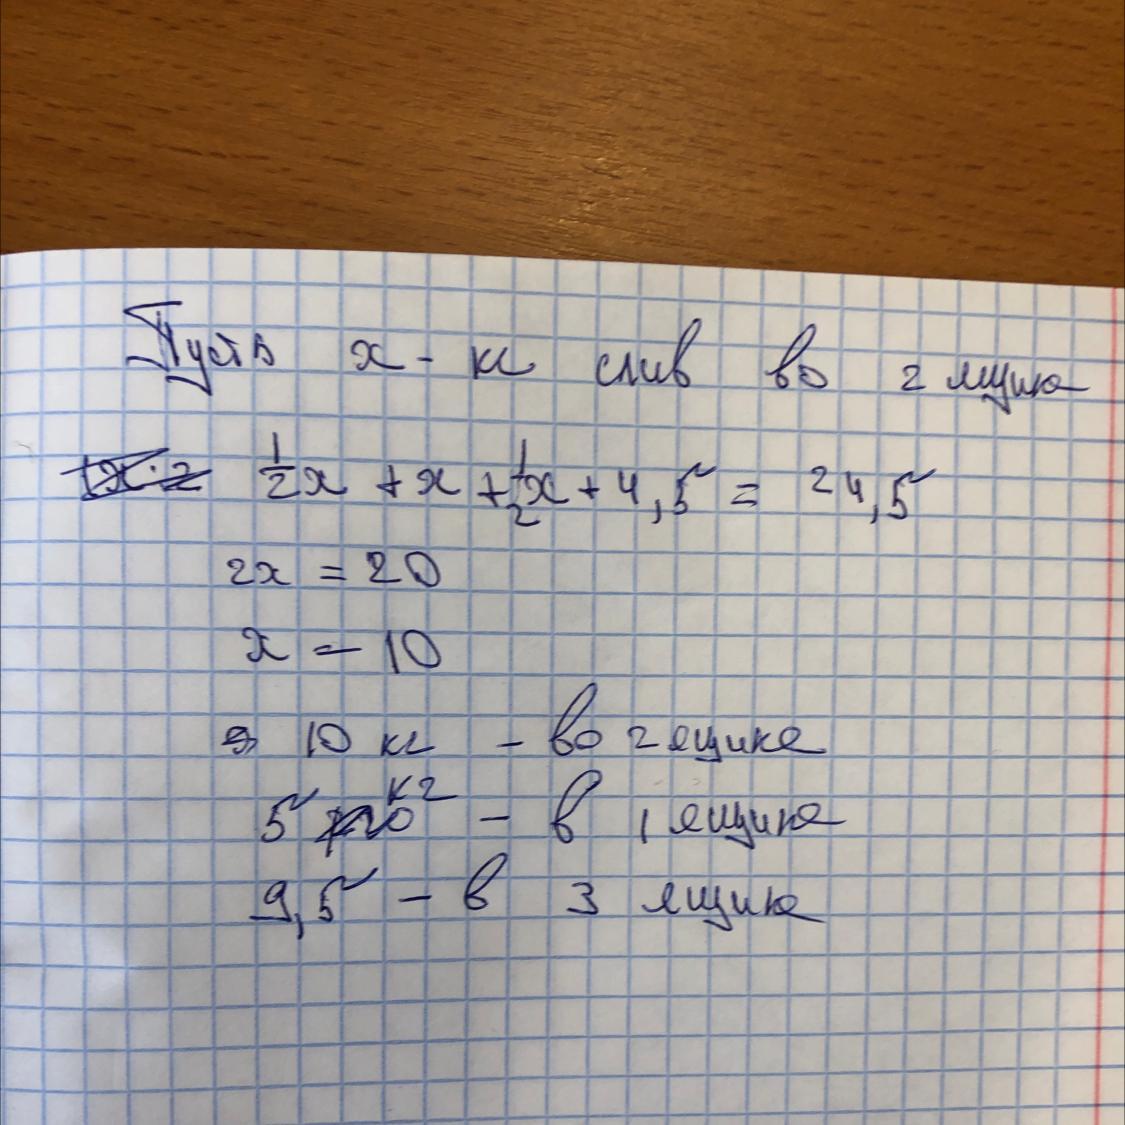 Пусть x - кг слив во 2 ящике
1/2x + x + 1/2x + 4,5 = 24,5
2x = 20
x = 10
10 кг - во 2 ящике
5 кг - в 1 ящике
9,5 - в 3 ящике